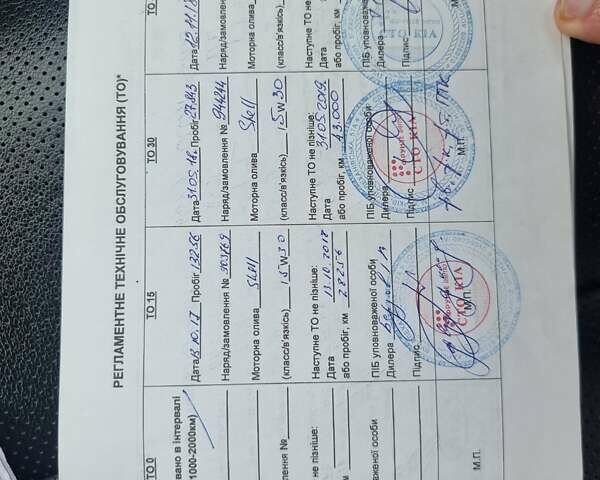 РЕГЛАМЕНТНЕ ТЕХНІЧНЕ ОБСЛУГОВУВАННЯ (ТО)*
ТО 0
вано в інтервалі
1000-2000км)
лення №
не пізніше:
важеної особи
М.П.
ТО 15
Дата 13.10.17 Пробіг 13256
Наряд/замовлення №
Моторна олива Shell
(класс/в'язкість) 15W30
Наступне ТО не пізніше:
Дата 13.10.2018
або пробіг, км 28256
ПІБ уповноваженої особи
Дилера
Підпис
СТО KIA
М.П.
ТО 30
Дата 31.05.18 Пробіг 27843
Наряд/замовлення № 944244
Моторна олива Shell
(класс/в'язкість) 15W30
Наступне ТО не пізніше:
Дата 31.05.2019
або пробіг, км 43.000
ПІБ уповноваженої особи
Дилера
Підпис
СТО KIA
М.П.
ТО
Дата 12.11.18
Наряд/замовл
Моторна оли
(класс/в'язкіс
Наступне ТО
Дата
або пробіг, км
ПІБ уповноваж
Дилера
Підпис
СТО KIA